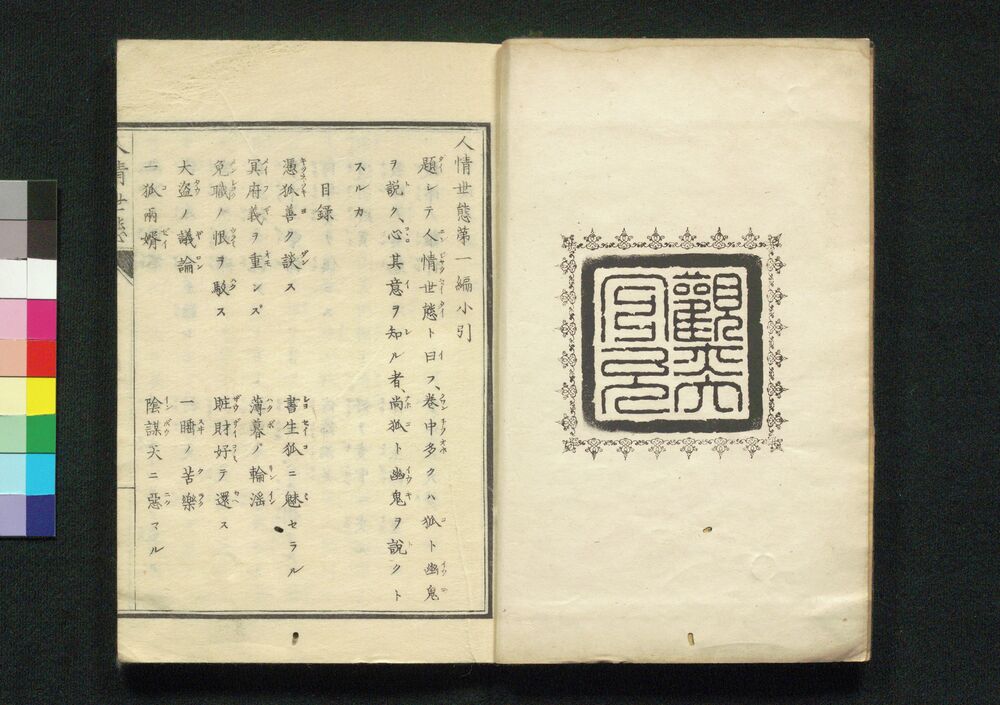 觀奕
人情世態第一編小引
題シテ人情世態ト曰フ、巻中多クハ狐ト幽鬼
ヲ説ク、心其意ヲ知ル者、尚狐ト幽鬼ヲ説クト
スルカ
目録
憑狐善ク談ス
書生狐ニ魅セラル
冥府義ヲ重ンズ
薄暮ノ輪滛
免職ノ恨ヲ駁ス
賍財好テ還ス
大盗ノ議論
一睡ノ苦樂
一狐兩婿
陰謀天ニ惡マル
人情世態